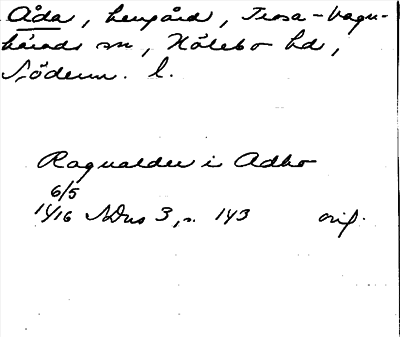 Åda, herrgård, Trosa-Vagn-
härads sn, Hölebo hd,
Söderm. l.
Ragualder i Adho
6/5
1416 SDns 3, s. 143 orig.